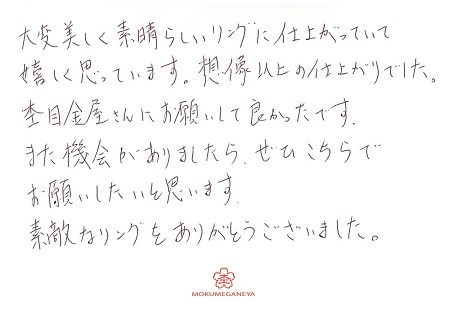 大変美しく素晴らしいリングに仕上がっていて
嬉しく思っています。想像以上の仕上がりでした。
杢目金屋さんにお願いして良かったです.
また機会がありましたら、ぜひこちらで
お願いしたいと思います.
素敵なリングをありがとうございました。
MOKUMEGANEYA